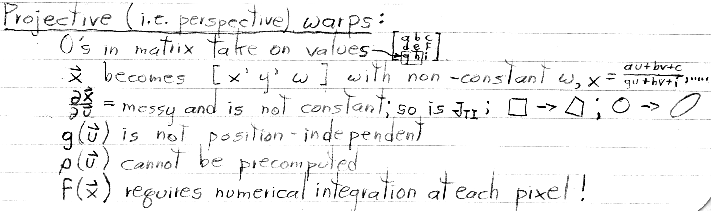 Projective (i.e. perspective) warps:
0's in matrix take on values → [a b c
d e f
g h i]
x⃗ becomes [x' y' w] with non-constant w, x = au+bv+c / gu+hv+i, .....
∂x⃗/∂u⃗ = messy and is not constant; so is J_II; □ → ⏢; ○ → ⬯
g(u⃗) is not position-independent
ρ(u⃗) cannot be precomputed
f(x⃗) requires numerical integration at each pixel!